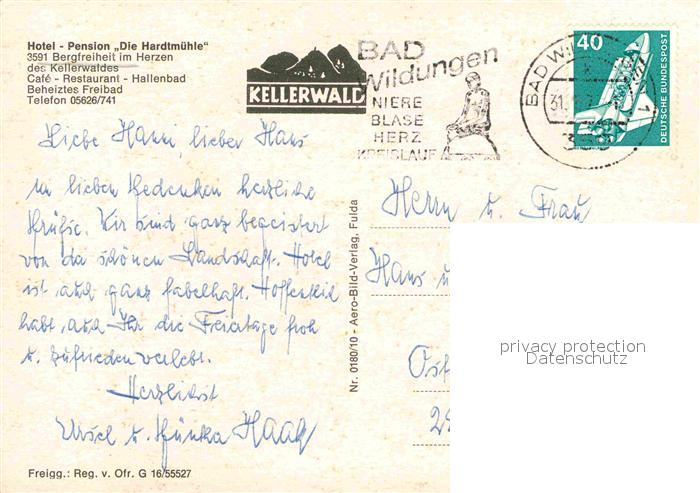 Hotel - Pension „Die Hardtmühle"
3591 Bergfreiheit im Herzen
des Kellerwaldes
Café - Restaurant - Hallenbad
Beheiztes Freibad
Telefon 05626/741
KELLERWALD
BAD
Wildungen
NIERE
BLASE
HERZ
KREISLAUF
BAD WI
31.
1
40
DEUTSCHE BUNDESPOST
Liebe Hanni, lieber Hans
In lieben Gedenken herzliche
Grüße. Wir sind ganz begeistert
von da schönen Landschaft. Hotel
ist auch ganz fabelhaft. Hoffentlich
habt auch Ihr die Feiertage froh
u. zufrieden verlebt.
Herzlichst
Ursel u. Haag
Herrn u. Frau
Hans u
Ost
29
Nr. 0180/10 - Aero-Bild-Verlag, Fulda
Freigg.: Reg. v. Ofr. G 16/55527
privacy protection
Datenschutz